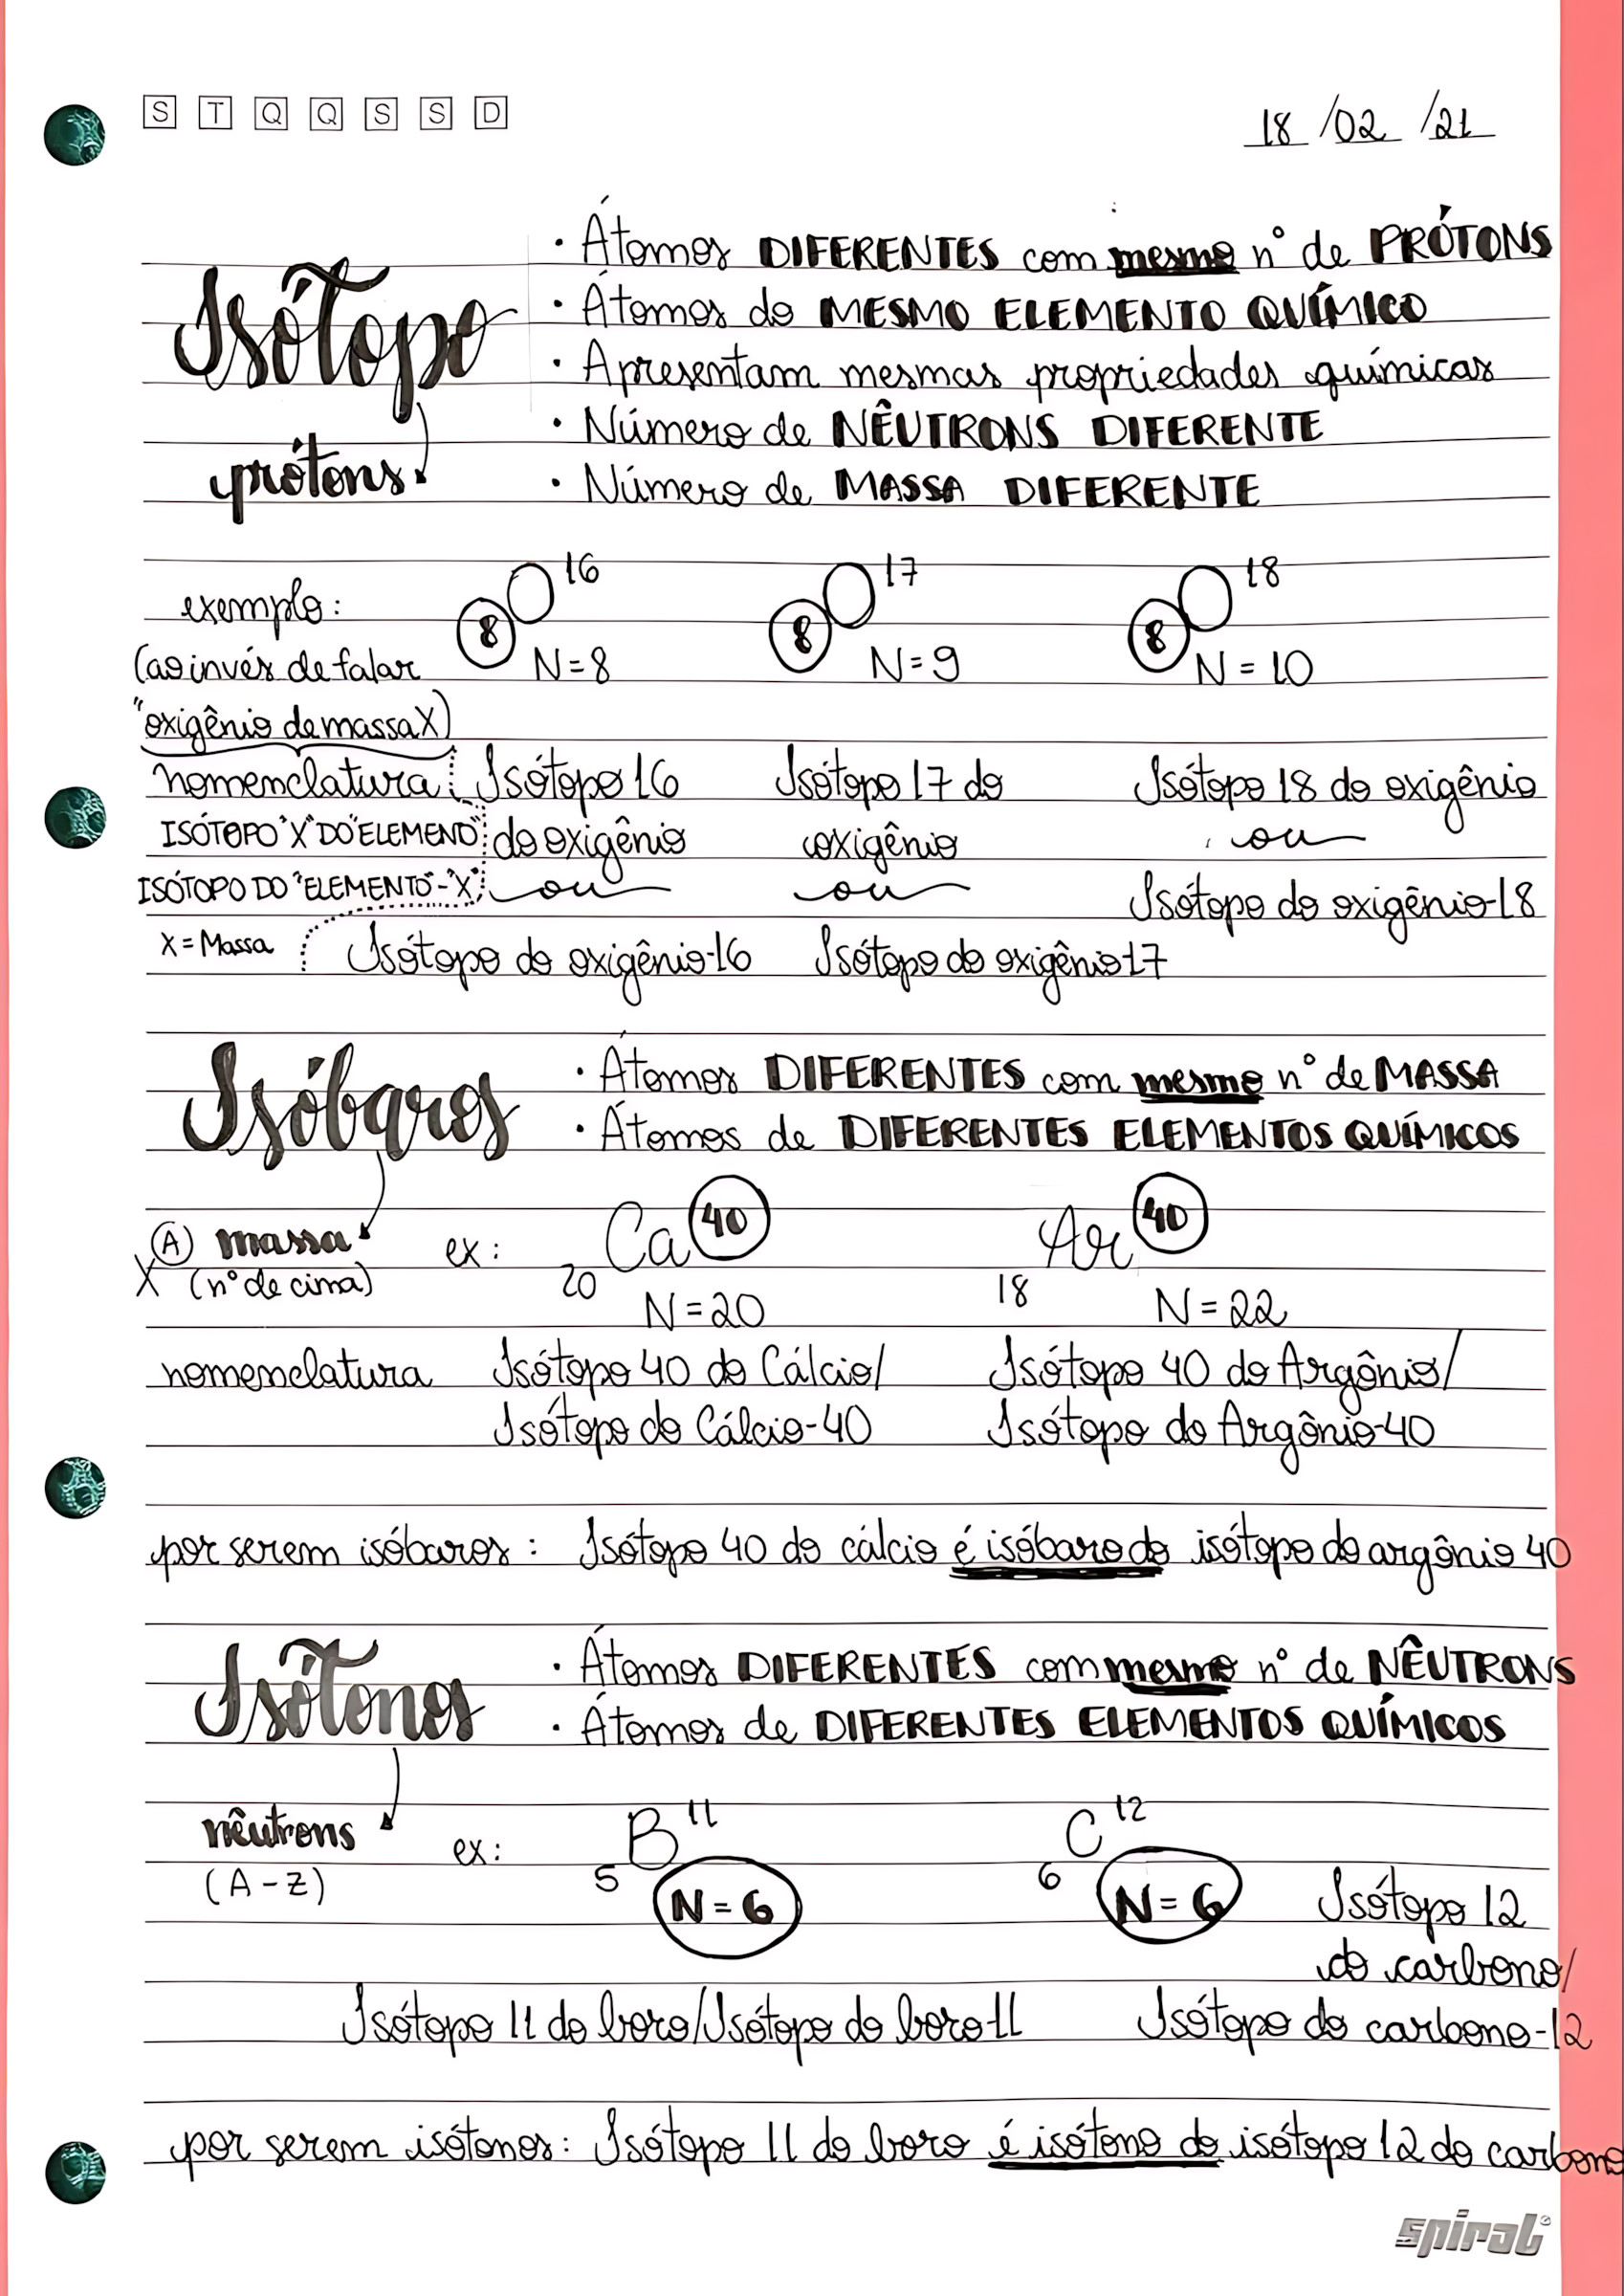 S T Q Q S S D
18 /02 /21
· Átomos DIFERENTES com mesmo n° de PRÓTONS
Isótopo
· Átomos do MESMO ELEMENTO QUÍMICO
· Apresentam mesmas propriedades químicas
· Número de NÊUTRONS DIFERENTE
prótons
· Número de MASSA DIFERENTE
exemplo:
8 O 16
8 O 17
8 O 18
(ao invés de falar
N=8
N=9
N=10
"oxigênio de massa X)
nomenclatura: Isótopo 16
Isótopo 17 do
Isótopo 18 do oxigênio
ISÓTOPO "X" DO "ELEMENO"
do oxigênio
oxigênio
ou
ISÓTOPO DO "ELEMENTO"-"X"
ou
ou
Isótopo do oxigênio-18
X = Massa
Isótopo do oxigênio-16
Isótopo do oxigênio-17
Isóbaros
· Átomos DIFERENTES com mesmo n° de MASSA
· Átomos de DIFERENTES ELEMENTOS QUÍMICOS
A massa
X (n° de cima)
ex:
20 Ca 40
18 Ar 40
N=20
N=22
nomenclatura
Isótopo 40 do Cálcio/
Isótopo 40 do Argônio/
Isótopo do Cálcio-40
Isótopo do Argônio-40
por serem isóbaros: Isótopo 40 do cálcio é isóbaro do isótopo do argônio 40
Isótonos
· Átomos DIFERENTES com mesmo n° de NÊUTRONS
· Átomos de DIFERENTES ELEMENTOS QUÍMICOS
nêutrons
(A-Z)
ex:
5 B 11
6 C 12
N=6
N=6
Isótopo 12
do carbono/
Isótopo 11 do boro/Isótopo do boro-11
Isótopo do carbono-12
por serem isótonos: Isótopo 11 do boro é isótono do isótopo 12 do carbono
spiral